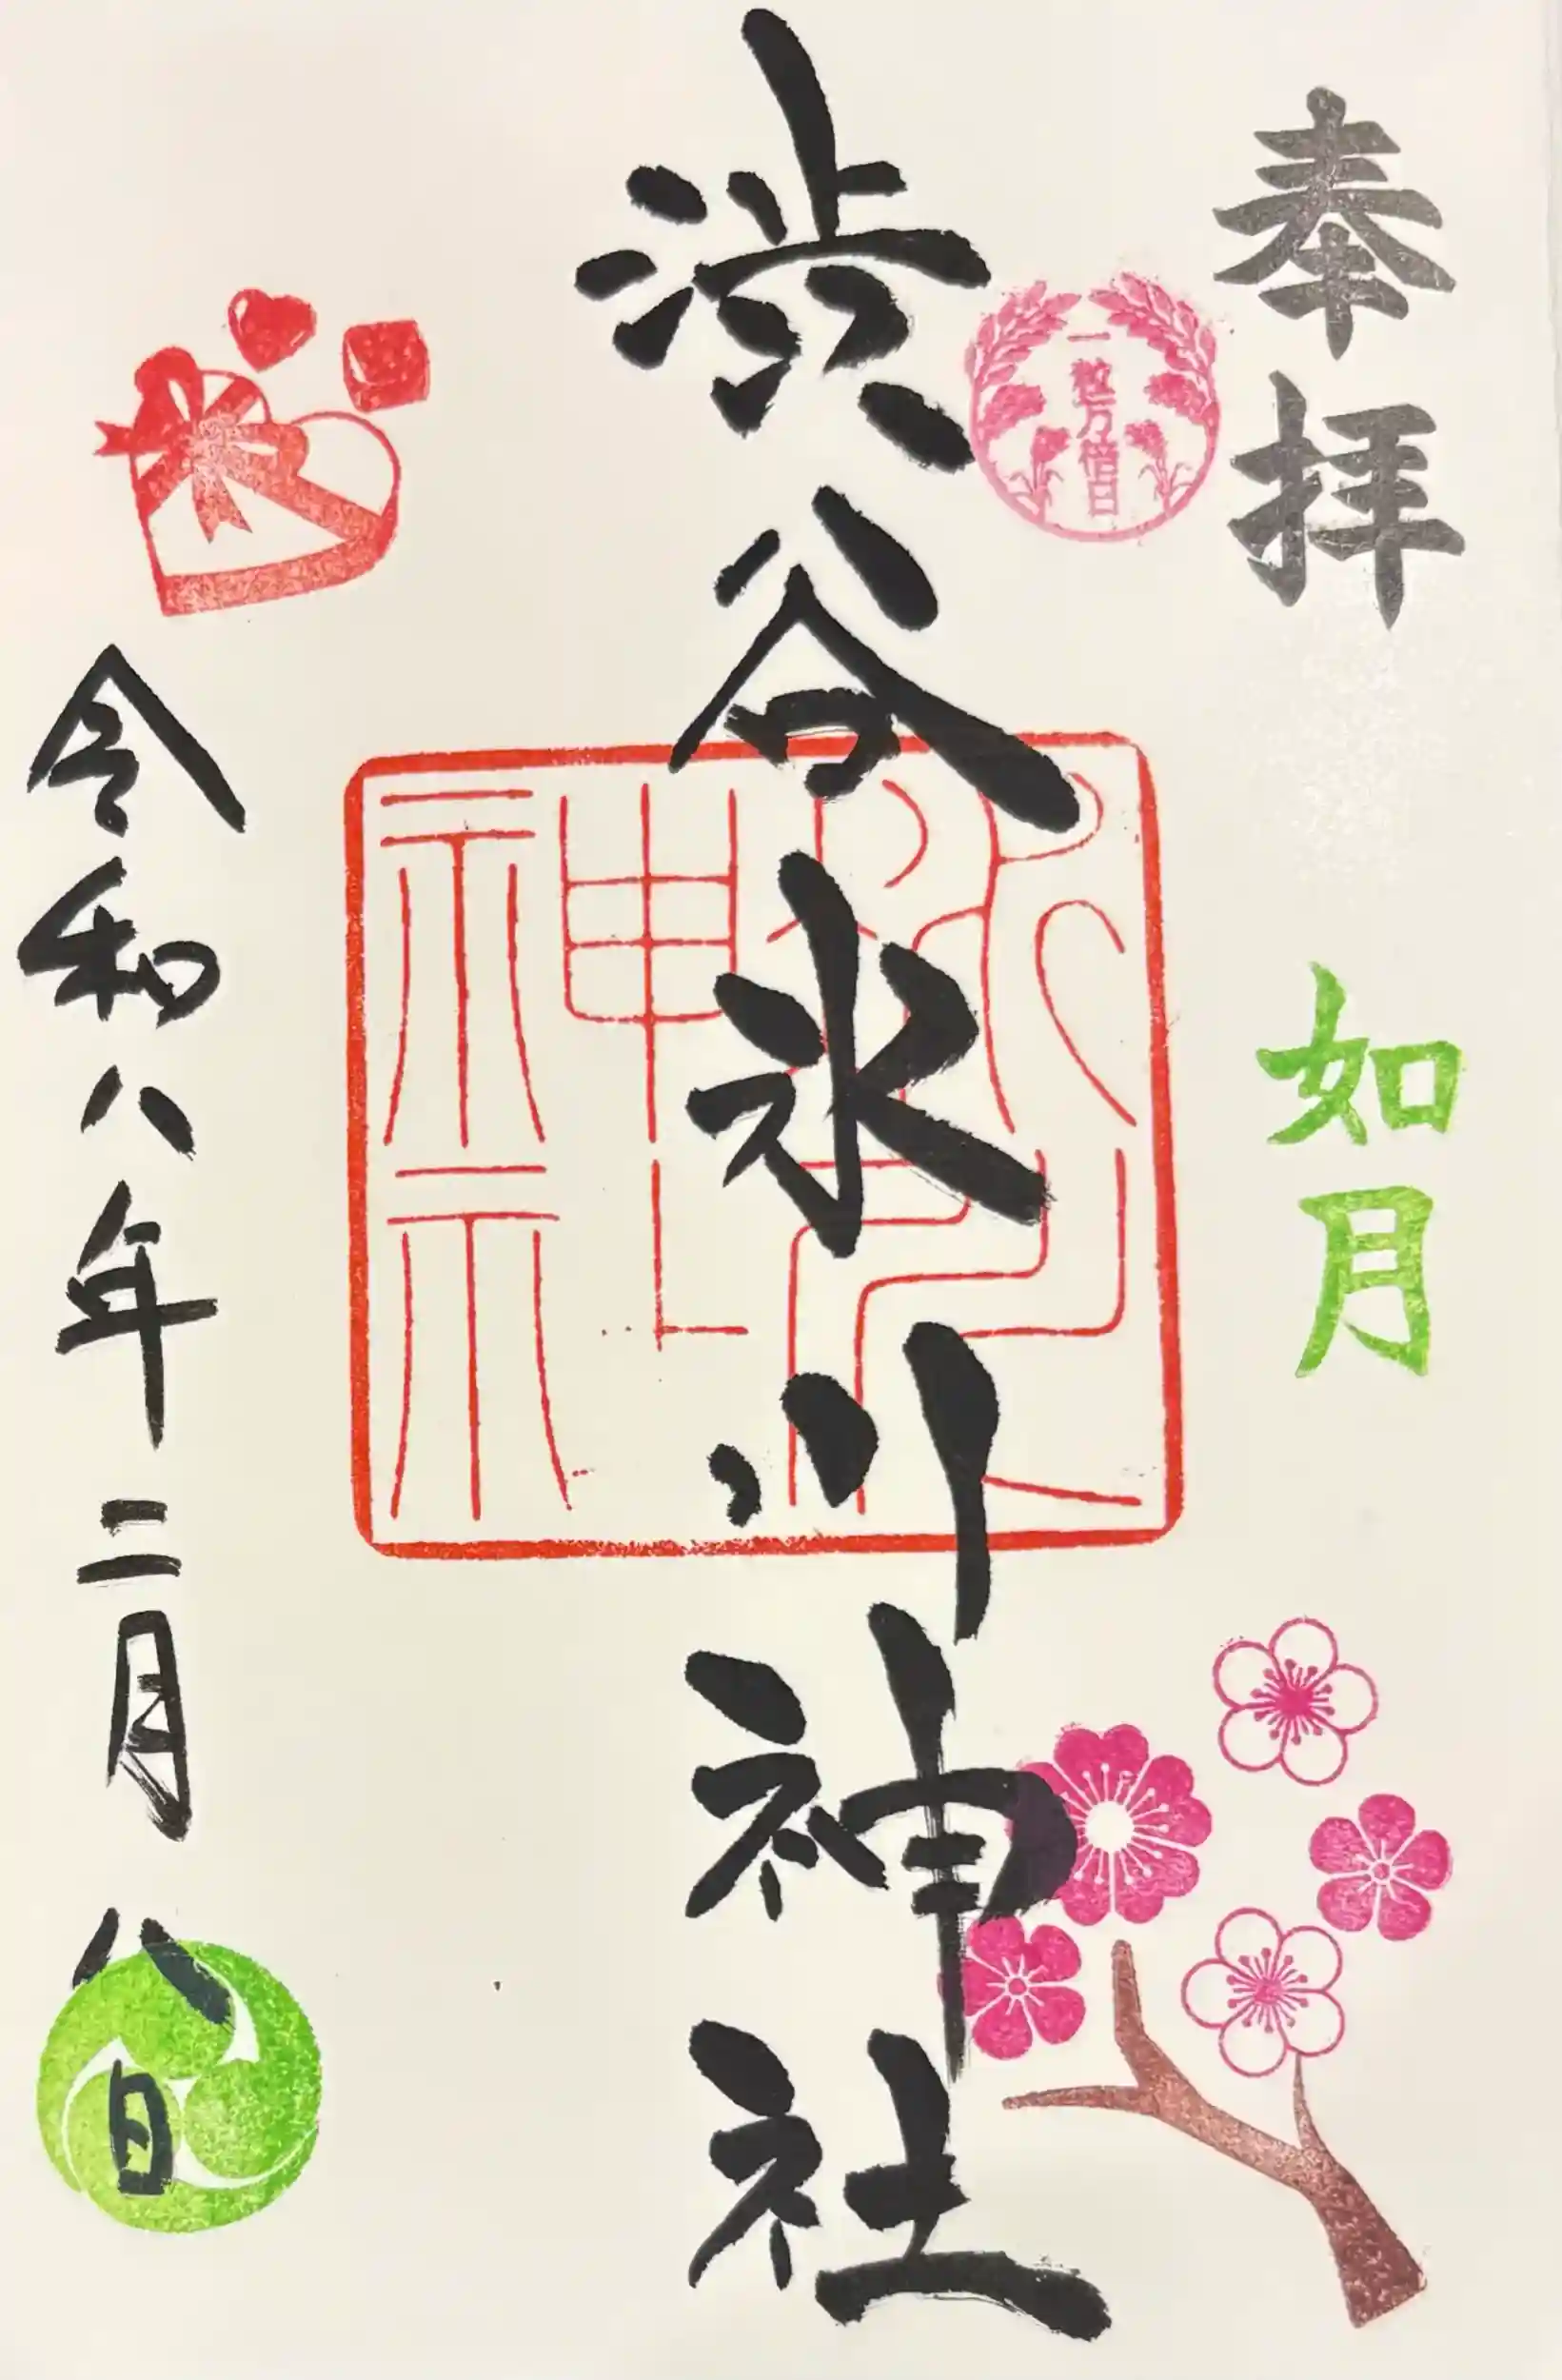 奉拝
如月
一粒万倍日
渋谷氷川神社
氷川神社
令和八年二月八日